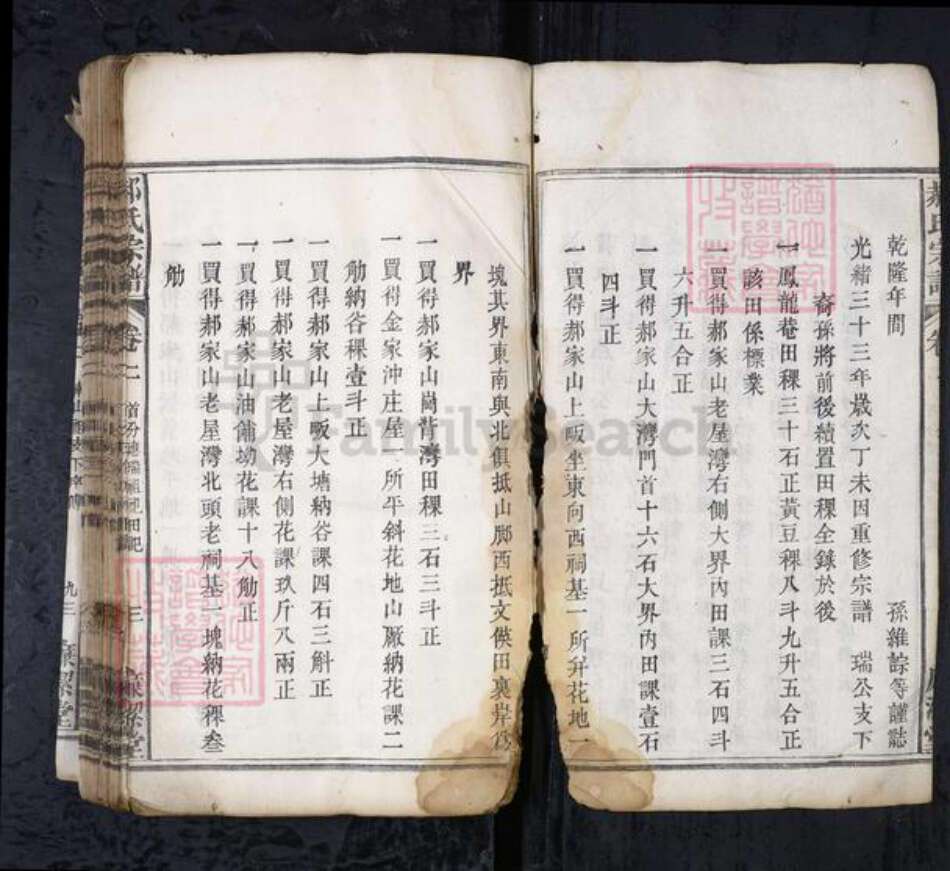 乾隆年間 孫維諒等謹誌
光緒三十三年歲次丁未因重修宗譜 瑞公支下
裔孫將前後續置田稞全錄於後
一鳳龍菴田稞三十石正黃豆稞八斗九升五合正
該田係標業
一買得郝家山老屋灣右側大界內田課三石四斗
六升五合正
一買得郝家山大灣門首十六石大界內田課壹石
四斗正
一買得郝家山上畈坐東向西祠基一所并花地一
塊其界東南與北俱抵山腳西抵文俠田裏岸為
界
一買得郝家山崗背灣田稞三石三斗正
一買得金家沖庄屋一所平斜花地山厰納花課二
觔納谷稞壹斗正
一買得郝家山上畈大塘納谷課四石三斛正
一買得郝家山老屋灣右側花課玖斤八兩正
一買得郝家山油鋪坳花課十八觔正
一買得郝家山老屋灣北頭老祠基一塊納花稞叁
觔
郝氏宗譜 卷二 三
FamilySearch